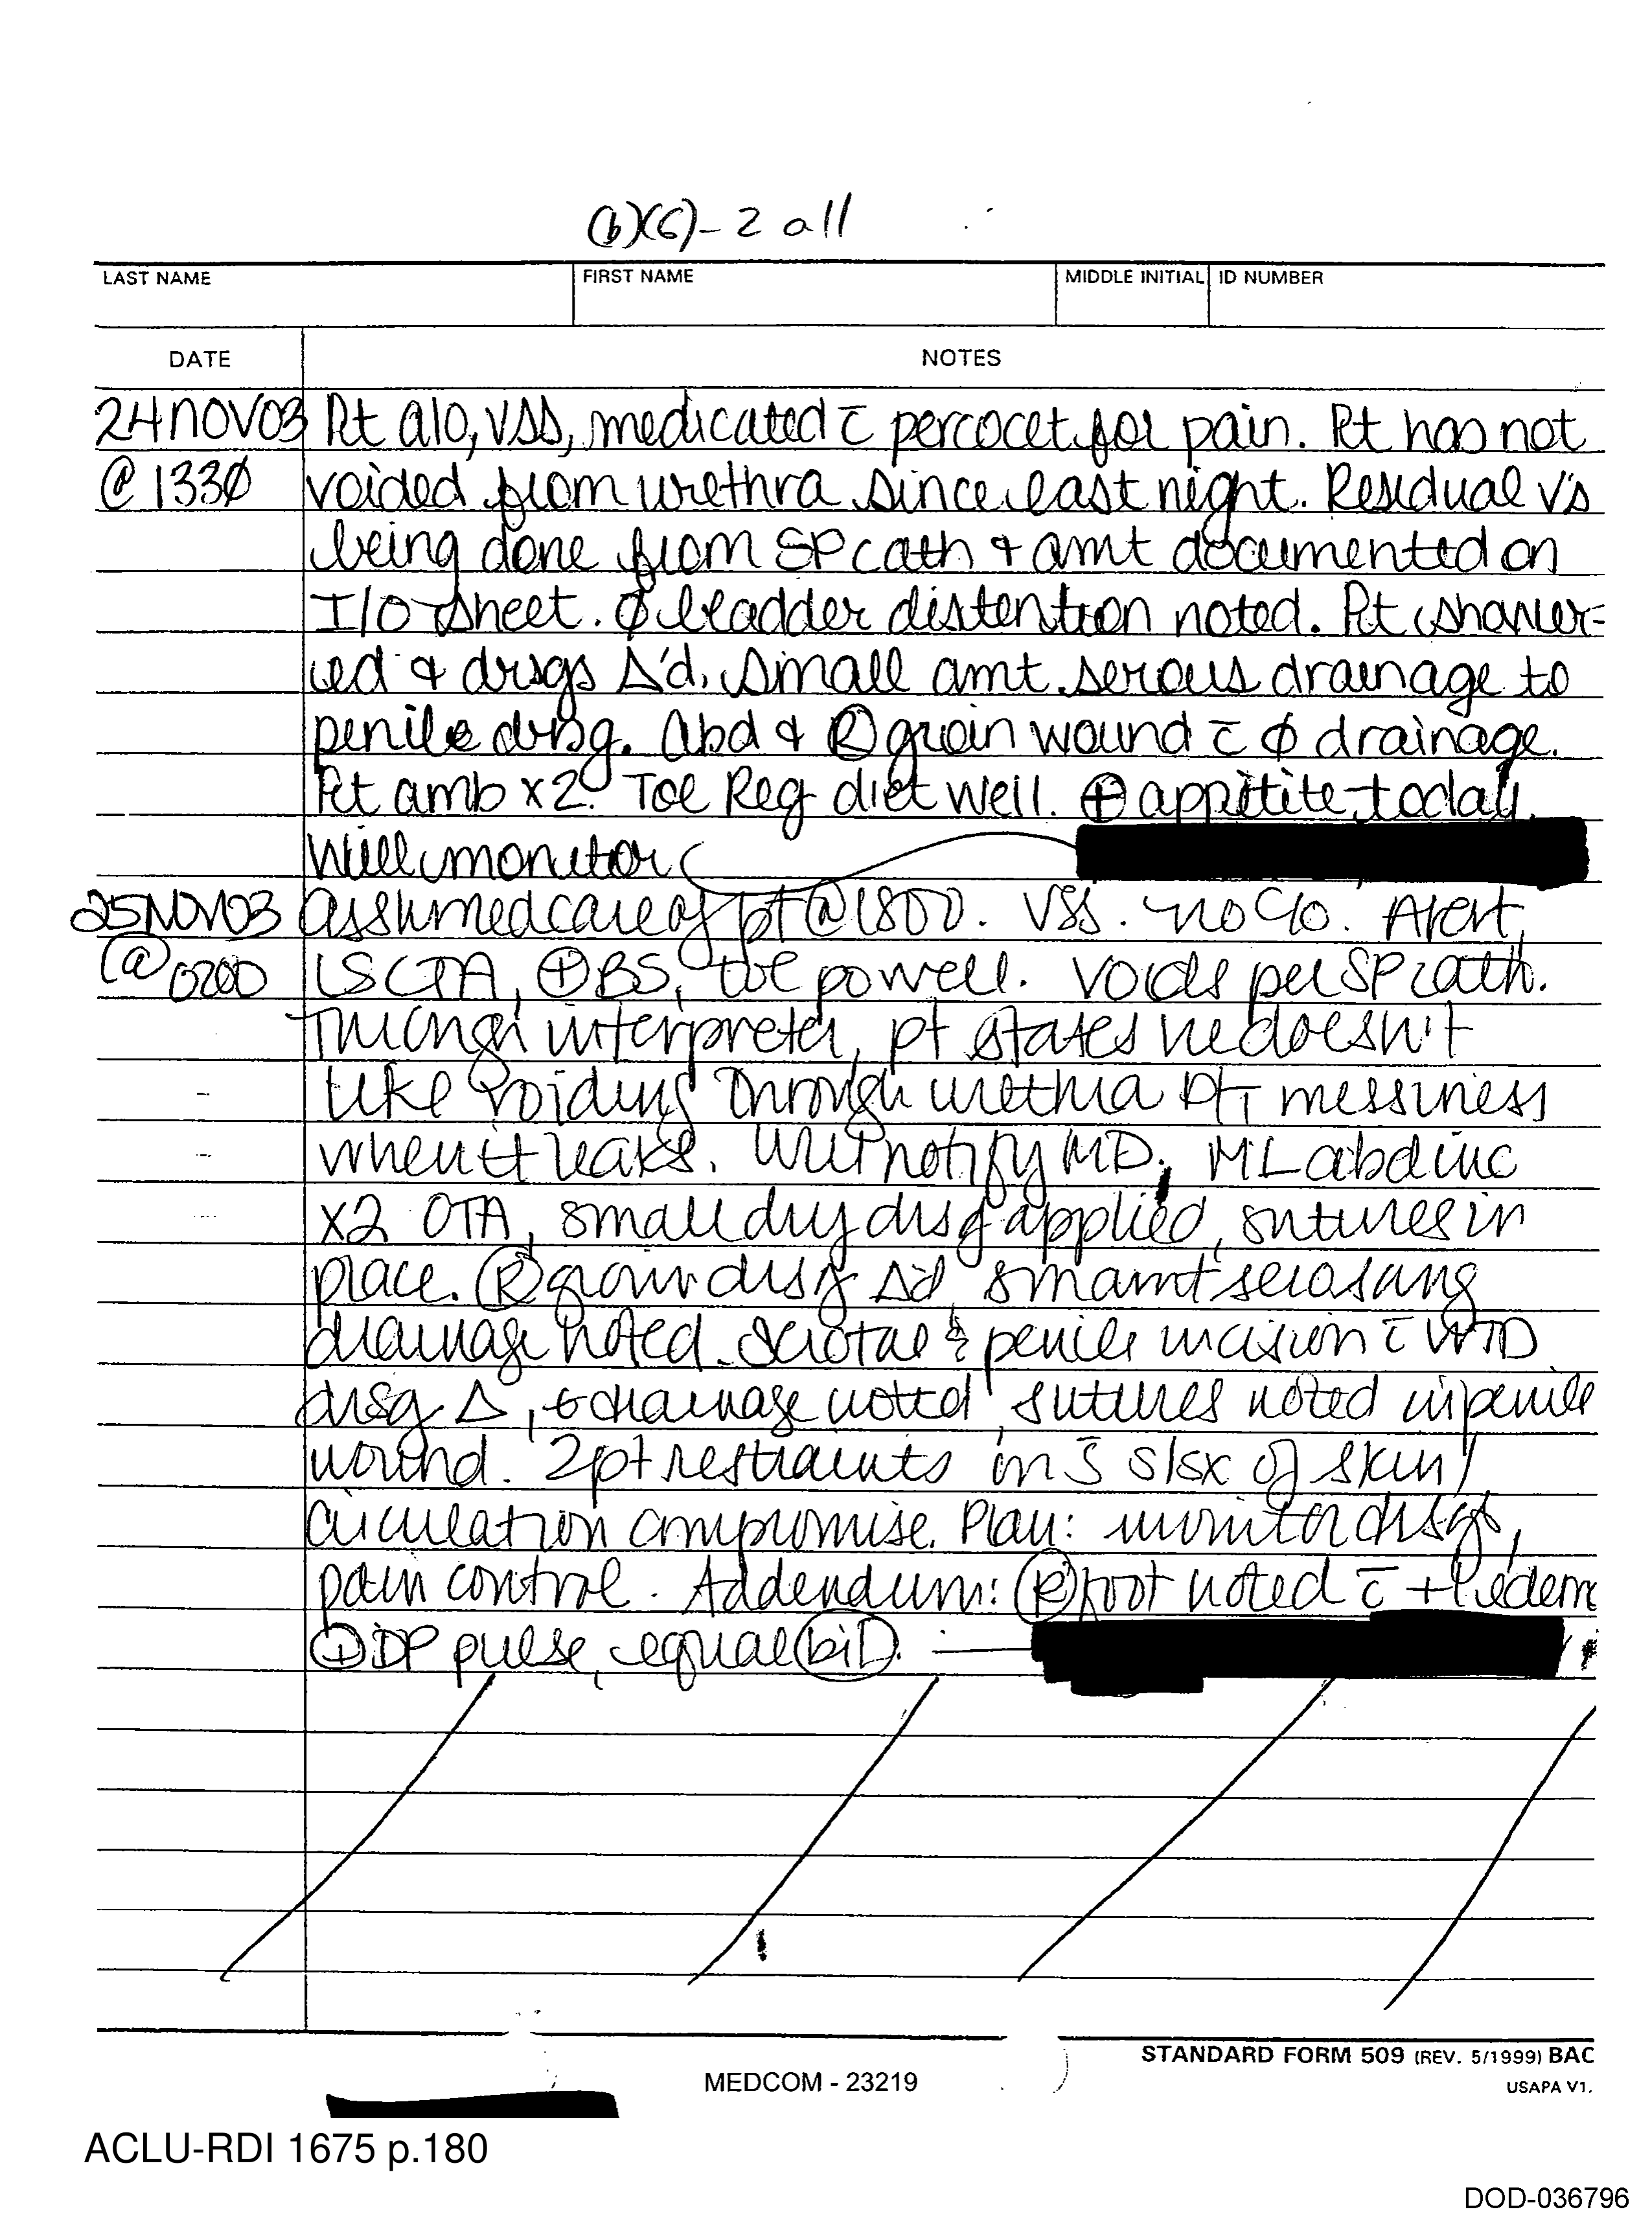 (b)(6)-2 all
LAST NAME FIRST NAME MIDDLE INITIAL ID NUMBER
DATE NOTES
24NOV03 Pt a/o, VSS, medicated c̄ percocet for pain. Pt has not
@ 133Ø voided from urethra since last night. Residual V's
being done from SP cath + amt documented on
I/O sheet. Ø bladder distention noted. Pt shower-
ed + drsgs Δ'd. Small amt serous drainage to
penile drsg. Abd + Ⓡ groin wound c̄ Ø drainage.
Pt amb x2. Tol Reg diet well. ⊕ appitite today.
Will monitor
25NOV03 assumed care of pt @ 1800. VSS. no c/o. Alert,
@ 0200 LSCTA, ⊕BS, tol po well. Voids per SP cath.
Through interpreter, pt states he doesn't
like voiding through urethra messiness
when it leaks. Will notify MD. ML abd inc
x2 OTA, small dry drsg applied, sutures in
place. Ⓡ groin drsg Δ'd sm amt serosang
drainage noted. Scrotal & penile incision c̄ WTD
drsg Δ, drainage noted, sutures noted in penile
wound. 2pt restraints on s̄ s/sx of skin/
circulation compromise. Plan: monitor drsgs,
pain control. Addendum: Ⓡ foot noted c̄ +1 edema
⊕DP pulse, equal bil.
STANDARD FORM 509 (REV. 5/1999) BAC
MEDCOM - 23219
USAPA V1.
ACLU-RDI 1675 p.180
DOD-036796